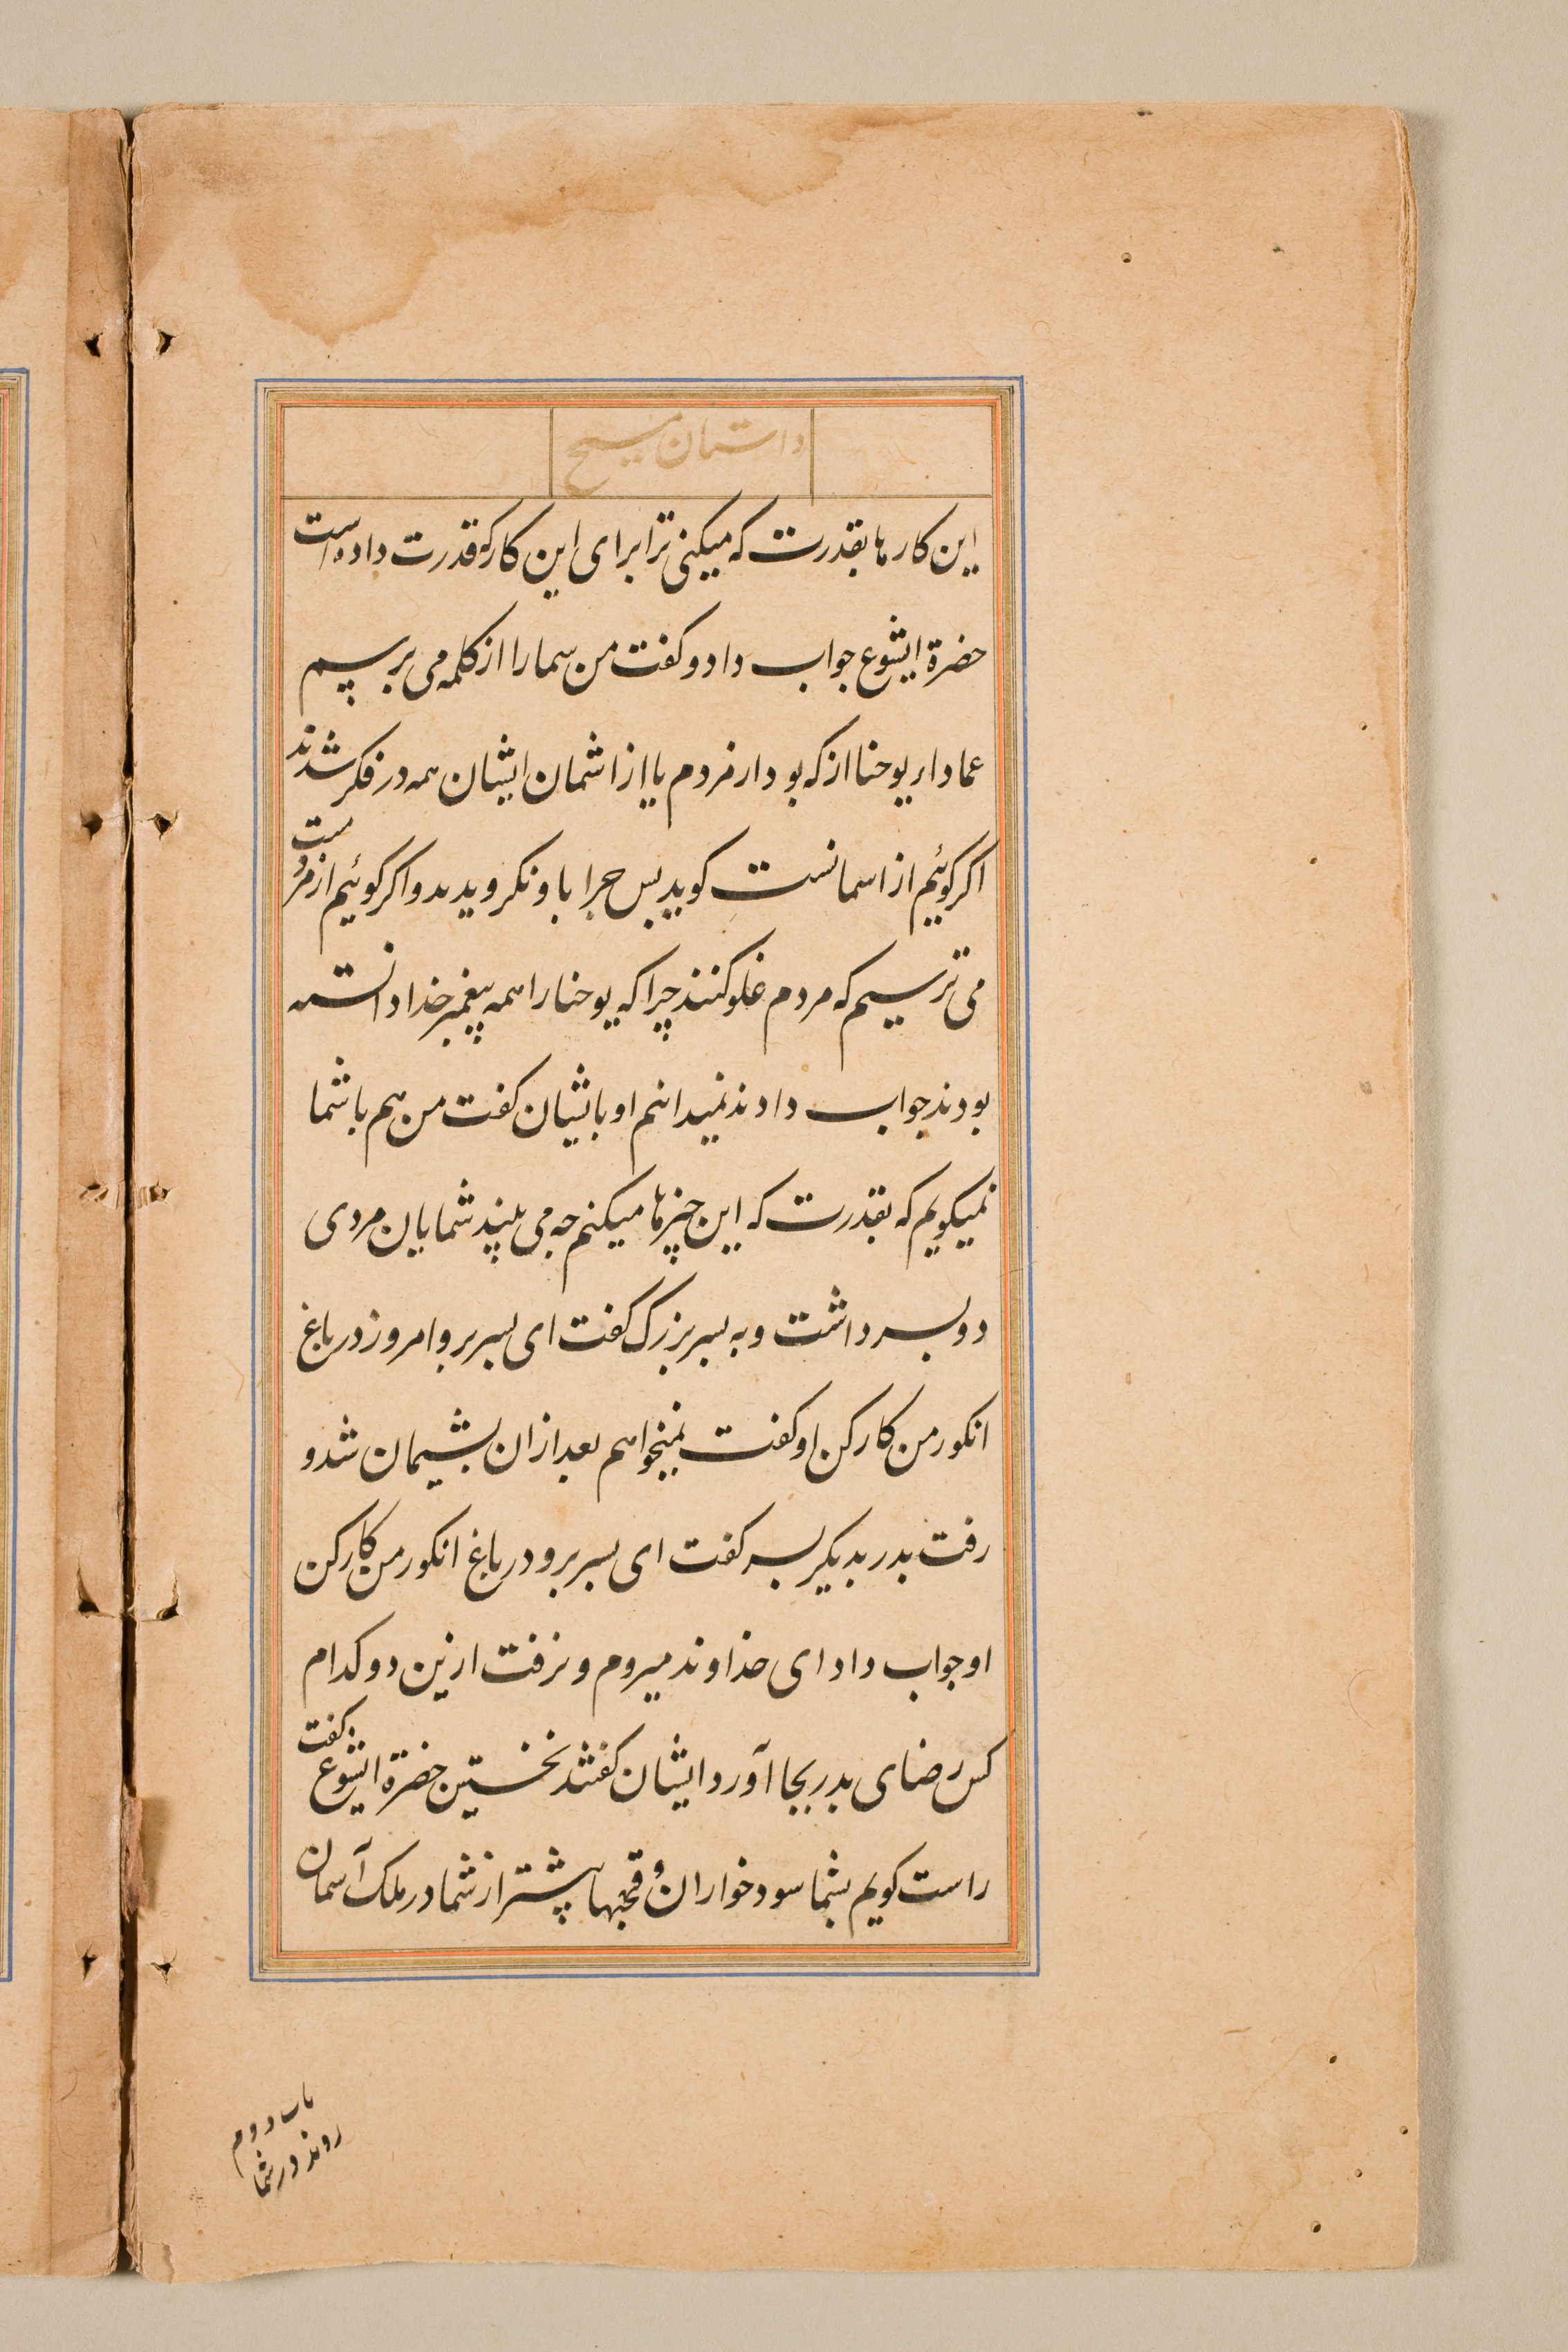 داستان مسیح
این کارها بقدرت که میکنی ترا برای این کار که قدرت داده است
حضرة ایشوع جواب داد و کفت من سما را از کلمه می برسم
عماد ار یوحنا از که بود از مردم یا از اشمان ایشان همه در فکر شدند
اکر کوئیم از اسمانست کوید بس جرا باو نکرویدید و اکر کوئیم از مردمست
می ترسیم که مردم غلو کنند چرا که یوحنا را همه پیغمبر خدا دانسته
بودند جواب دادند نمیدانم او بایشان کفت من هم با شما
نمیکویم که بقدرت که این چیزها میکنم چه می بینید شمایان مردی
دو بسر داشت و به بسر بزرک کفت ای بسر برو امروز در باغ
انکور من کار کن او کفت نمیخواهم بعد از ان بشیمان شد و
رفت بدر بدیکر بسر کفت ای بسر برو در باغ انکور من کار کن
او جواب داد ای خداوند میروم و نرفت ازین دو کدام
کس رضای بدر بجا آورد ایشان کفتند نخستین حضرة ایشوع کفت
راست کویم بشما سودخواران و قحبها پیشتر از شما در ملک آسمان
باب دوم
روند در شما